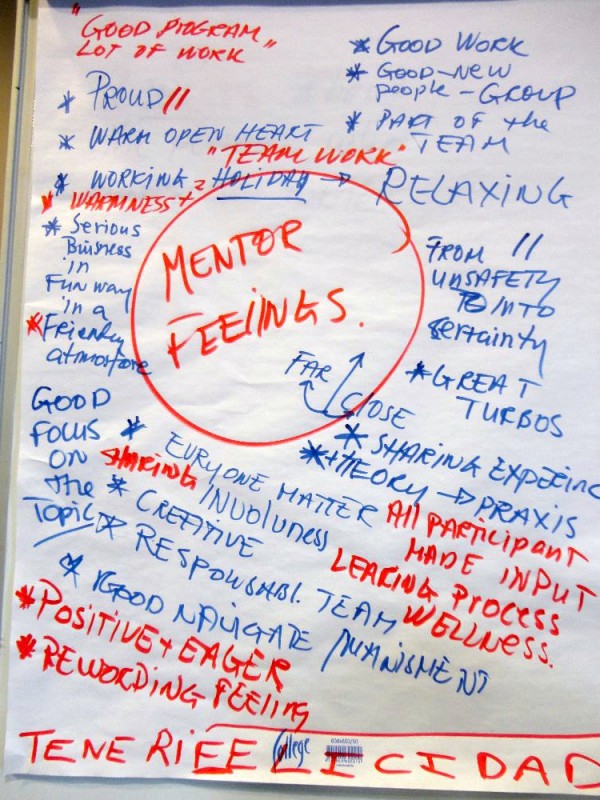 "GOOD PROGRAM
LOT OF WORK"
* PROUD //
* WARM OPEN HEART
"TEAM WORK"
* WORKING = HOLIDAY → RELAXING
* WARMNESS +
* Serious
Buisness
in
Fun way
in a
* Friendly
atmosfore
GOOD
FOCUS
ON
the
Topic
* GOOD WORK
* GOOD-NEW
people - GROUP
* PART OF the
TEAM
MENTOR
FEELINGS.
FAR
CLOSE
FROM //
UNSAFETY
TO INTO
certainty
* GREAT
TURBOS
* SHARING EXPERINC
* THEORY → PRAXIS
* EVRYONE MATTER
SHARING INVOLUNESS
* CREETIVE
* RESPONSABL. TEAM
* GOOD NAUGATE
All PARTICIPANT
MADE INPUT
LEARING PROCESS
WELLNESS.
* POSITIVE + EAGER
* REWORDING FEELING
TENERIFE LICIDAD
College